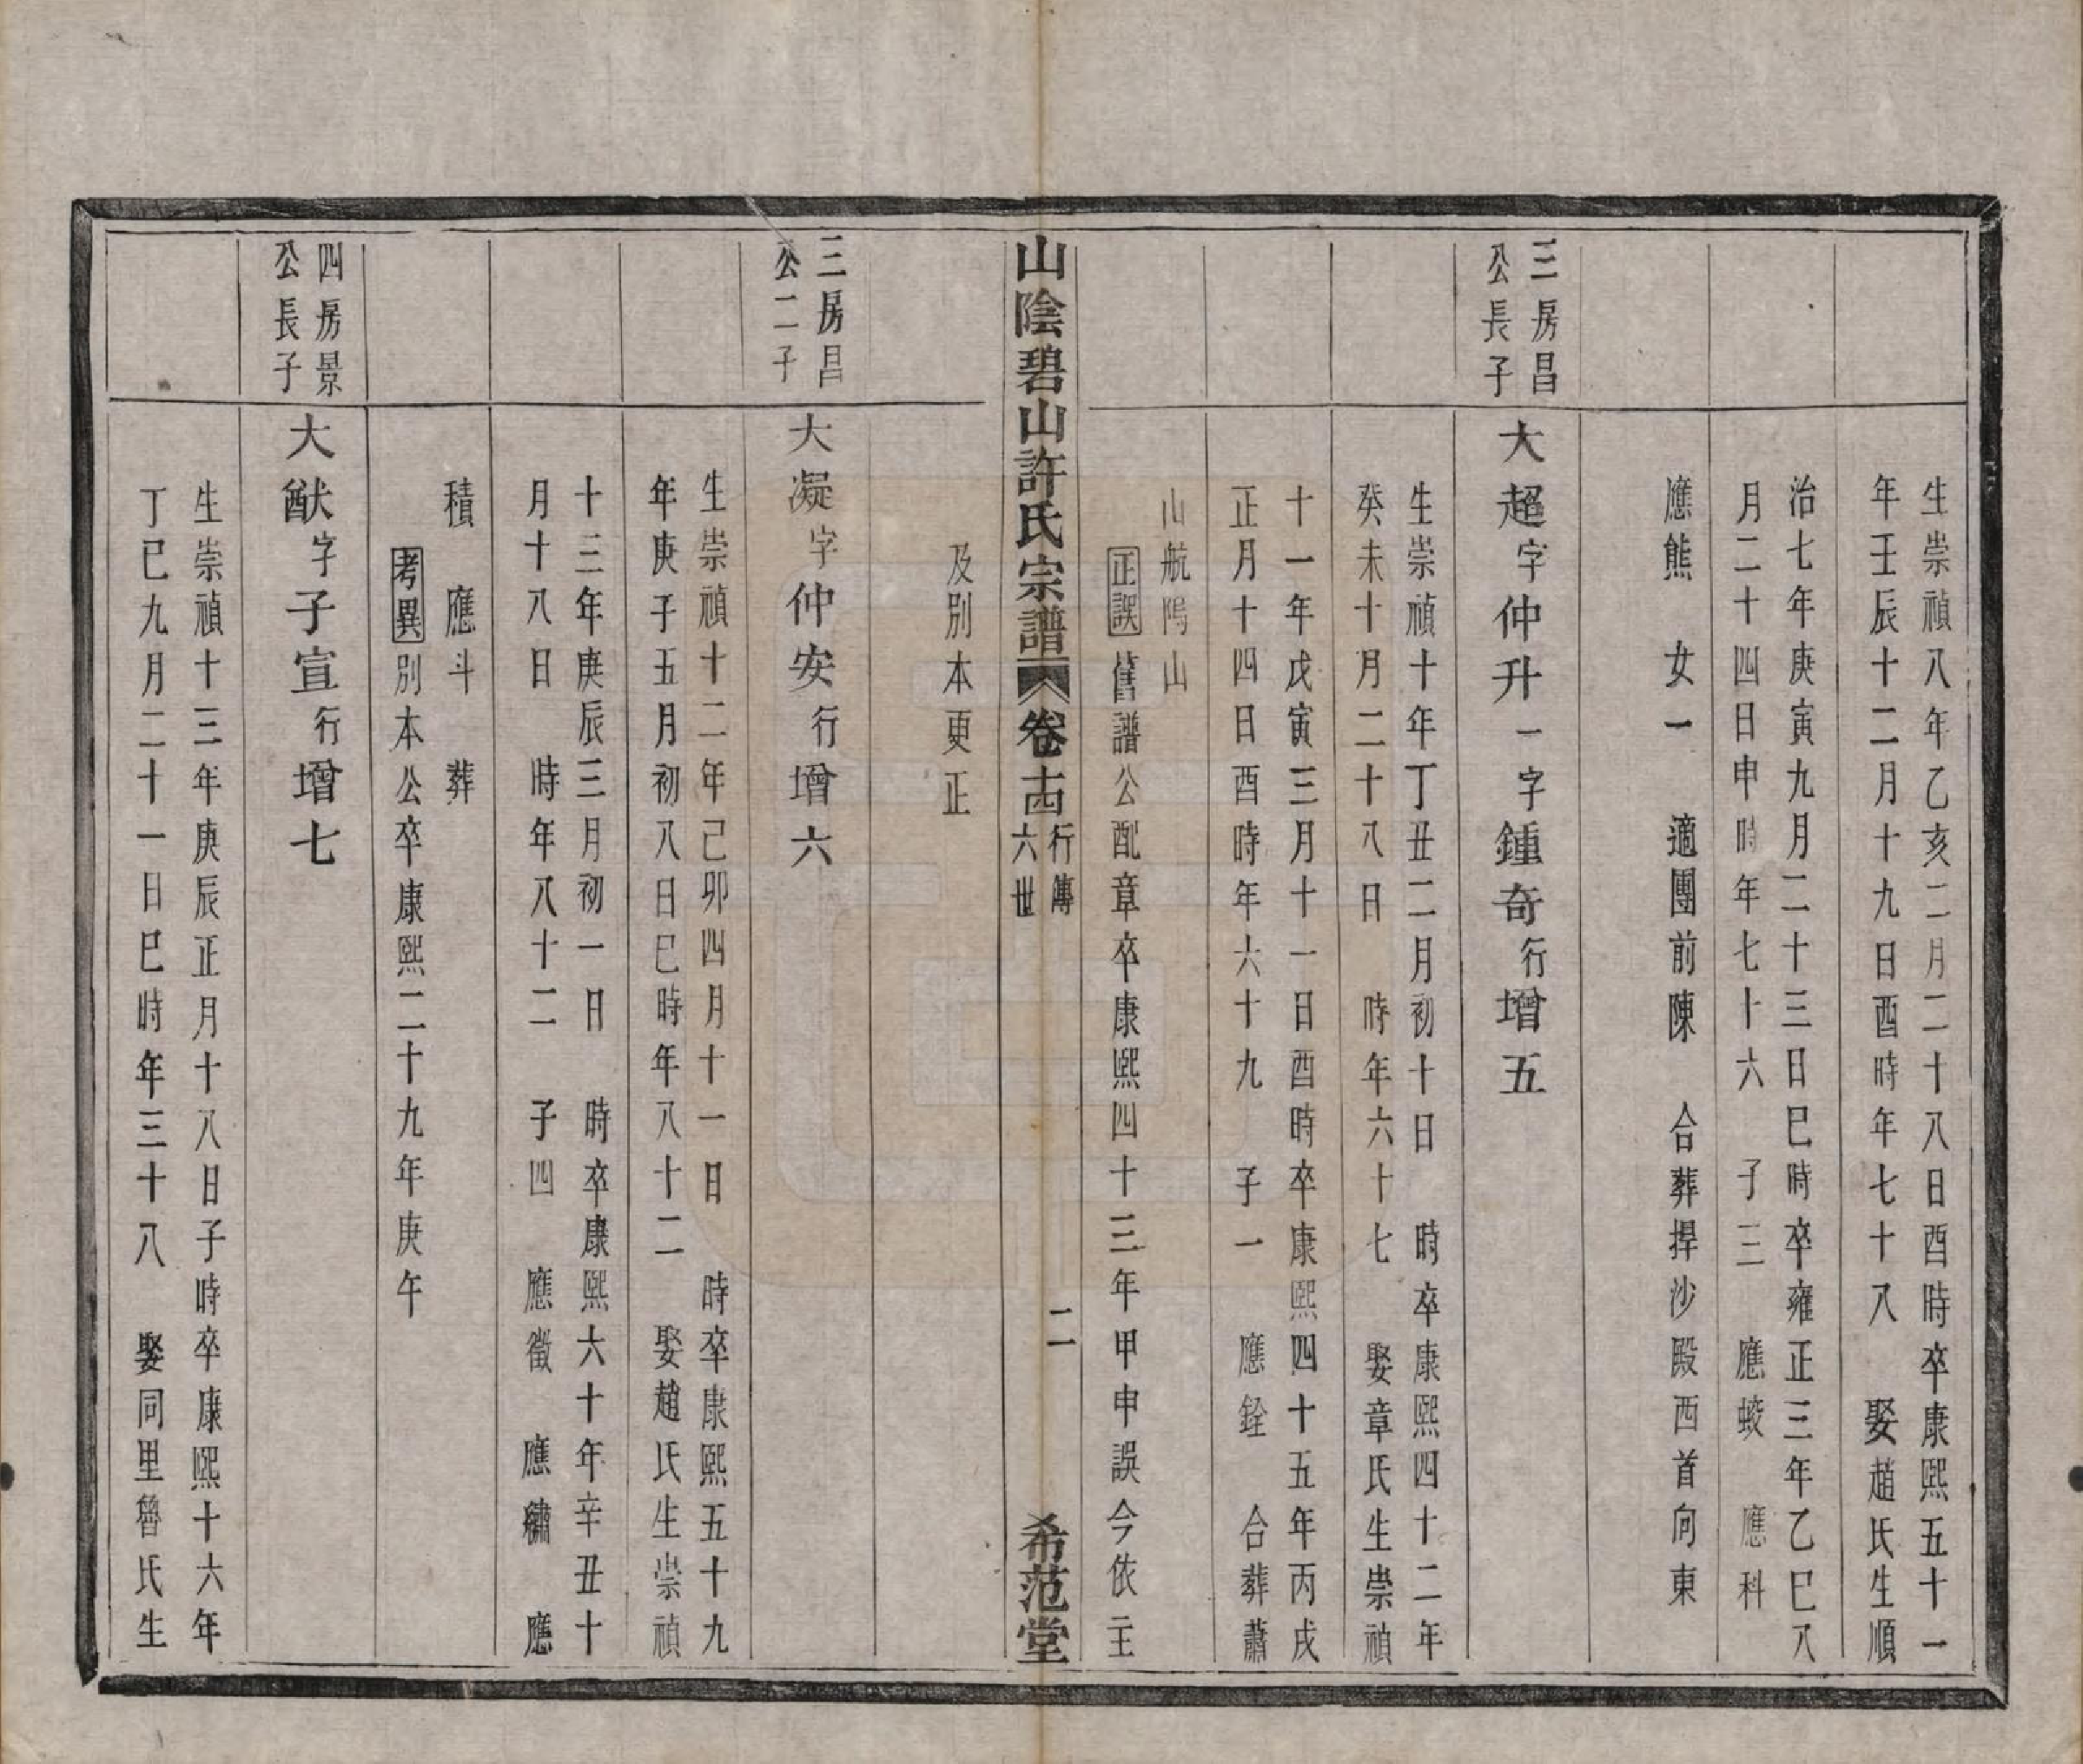 生崇禎八年乙亥二月二十八日酉時卒康熙五十一
年壬辰十二月十九日酉時年七十八 娶趙氏生順
治七年庚寅九月二十三日巳時卒雍正三年乙巳八
月二十四日申時年七十六 子三 應蛟 應科
應熊 女一 適團前陳 合葬捍沙殿西首向東
三房昌
公長子
大超字仲升一字鍾奇行增五
生崇禎十年丁丑二月初十日 時卒康熙四十二年
癸未十月二十八日 時年六十七 娶章氏生崇禎
十一年戊寅三月十一日酉時卒康熙四十五年丙戌
正月十四日酉時年六十九 子一 應銓 合葬蕭
山航塢山
正誤舊譜公配章卒康熙四十三年甲申誤今依主
山陰碧山許氏宗譜 卷十四 行傳 六世 二 希范堂
及別本更正
三房昌
公二子
大凝字仲安行增六
生崇禎十二年己卯四月十一日 時卒康熙五十九
年庚子五月初八日巳時年八十二 娶趙氏生崇禎
十三年庚辰三月初一日 時卒康熙六十年辛丑十
月十八日 時年八十二 子四 應徵 應繡 應
積 應斗 葬
考異別本公卒康熙二十九年庚午
四房景
公長子
大猷字子宣行增七
生崇禎十三年庚辰正月十八日子時卒康熙十六年
丁巳九月二十一日巳時年三十八 娶同里魯氏生